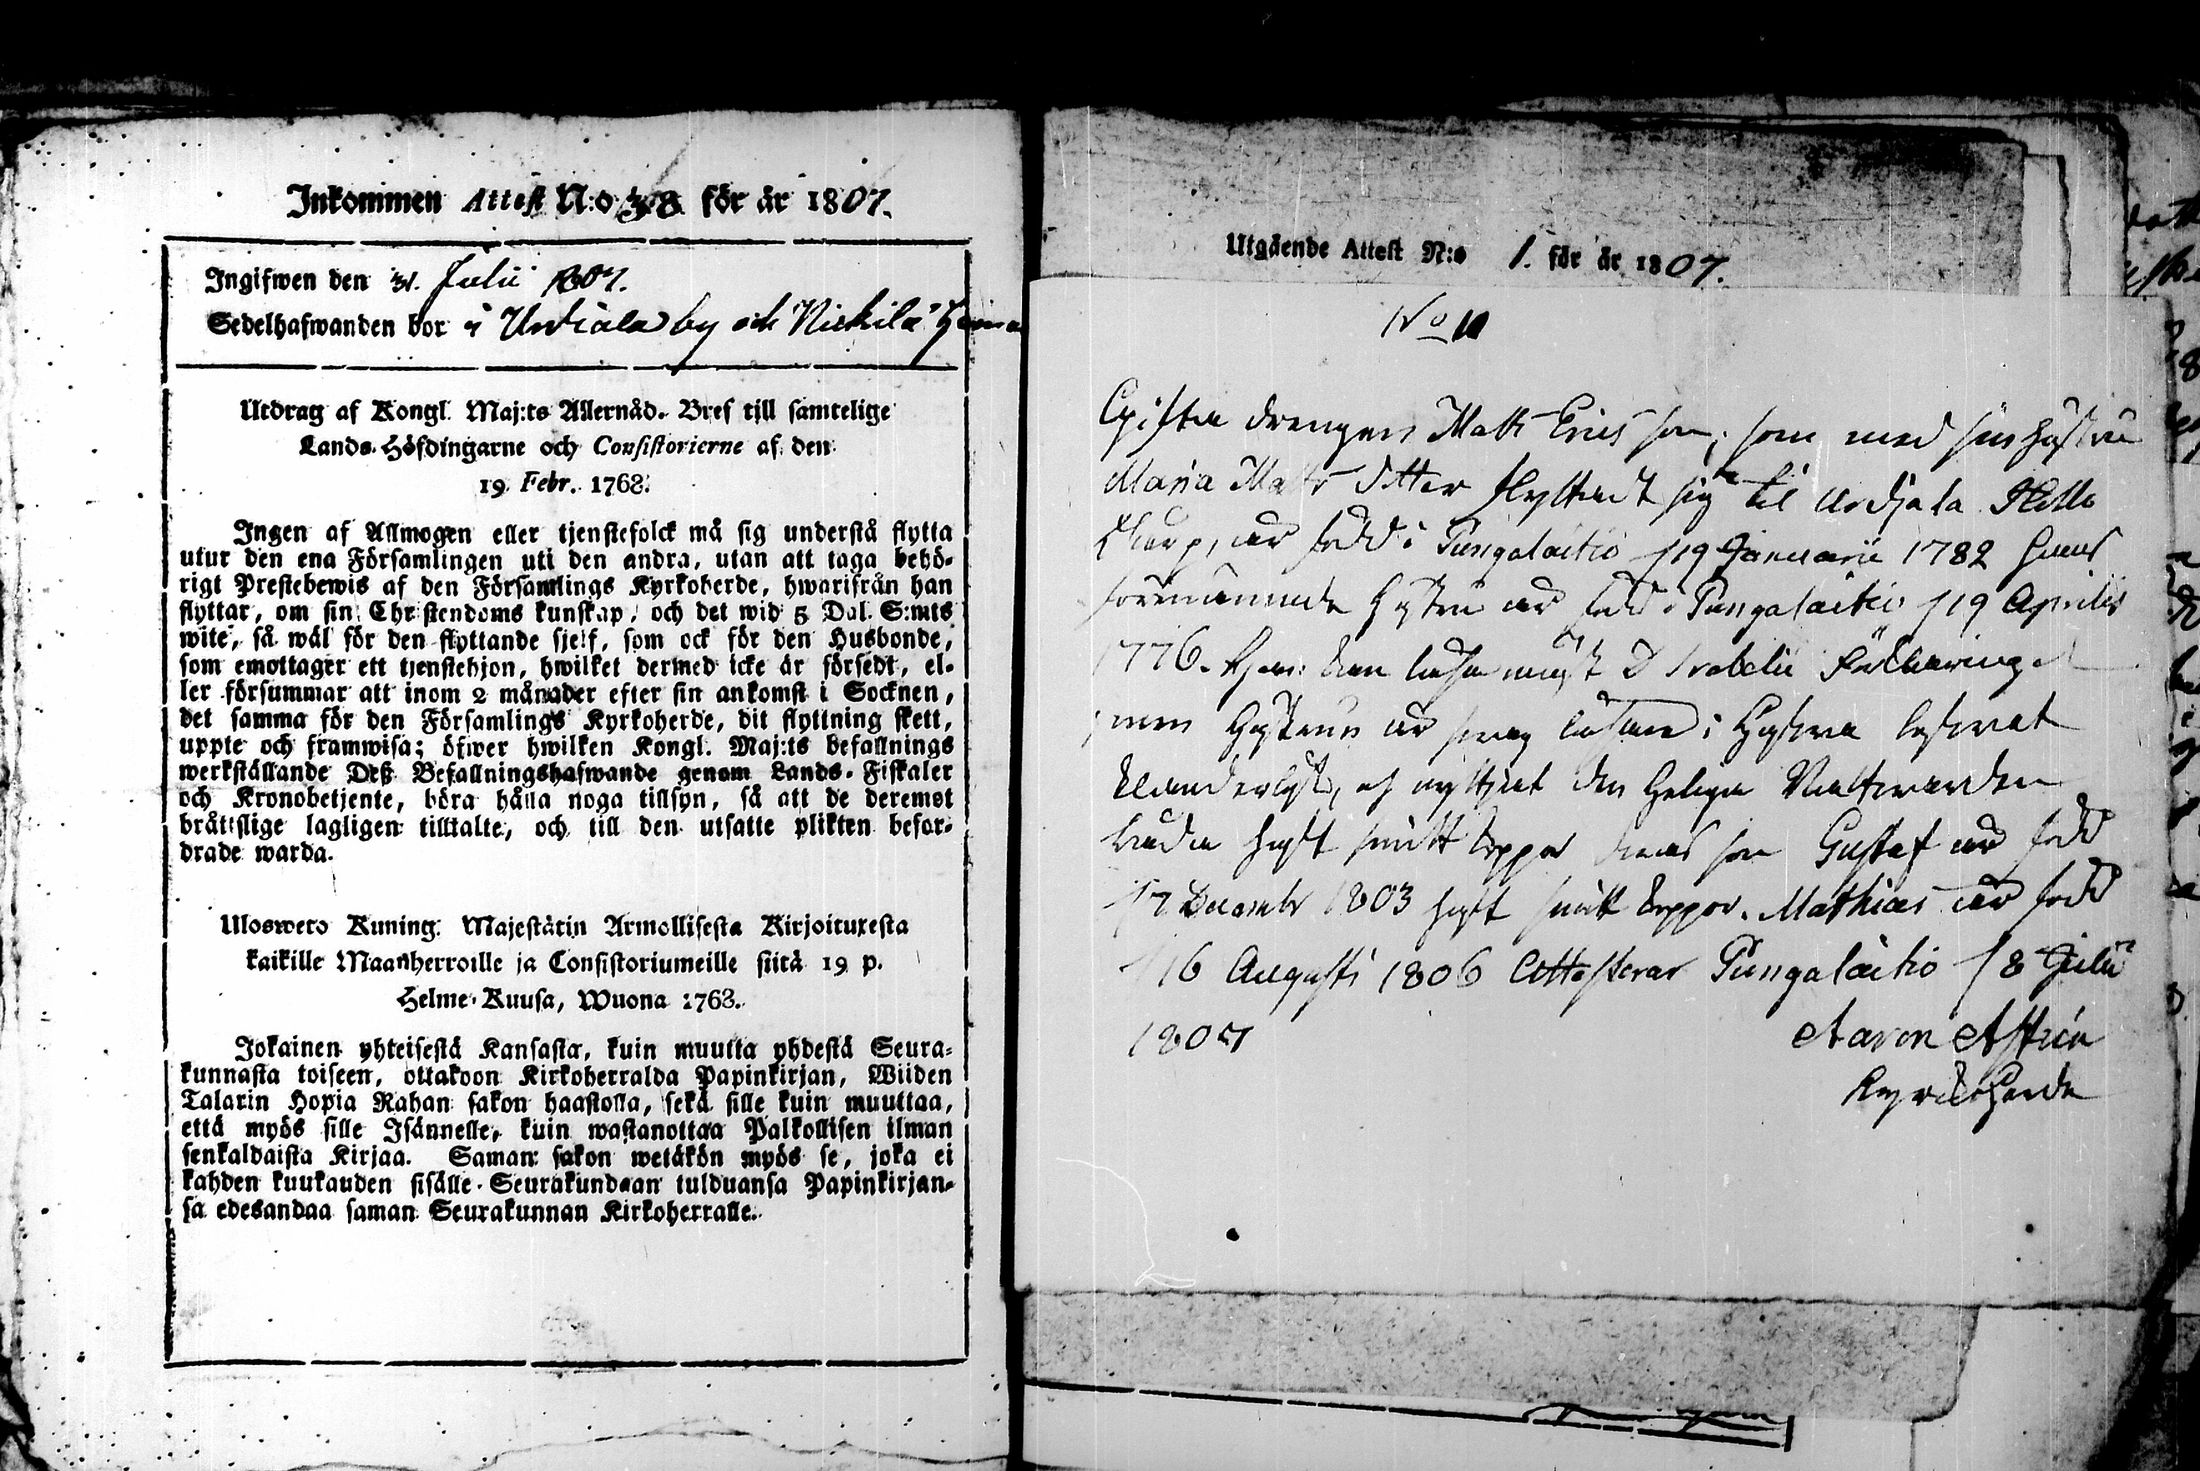 Inkommen Attest N:o 38 för år 1807.
Ingifwen den 31. Julii 1807.
Sedelhafwanden bor i Urdiala by och Nickilä
Utdrag af Kongl. Maj:ts Allernåd. Bref till samtelige
Lands-Höfdingarne och Consistorierne af den
19 Febr. 1768.
Ingen af Allmogen eller tjenstefolck må sig understå flytta
utur den ena Församlingen uti den andra, utan att taga behö-
rigt Prestebewis af den Församlings Kyrkoherde, hwarifrån han
flyttar, om sin Christendoms kunskap, och det wid 5 Dal. S:mts
wite, så wäl för den flyttande sjelf, som ock för den Husbonde,
som emottager ett tjenstehjon, hwilket dermed icke är försedt, el-
ler försummar att inom 2 månader efter sin ankomst i Socknen,
det samma för den Församlings Kyrkoherde, dit flyttning skett,
uppte och framwisa; öfwer hwilken Kongl. Maj:ts befallnings
werkställande Deß Befallningshafwande genom Lands-Fiskaler
och Kronobetjente, böra hålla noga tillsyn, så att de deremot
bråttslige lagligen tilltalte, och till den utsatte plikten befor-
drade warda.
Uloswero Kuning. Majestätin Armollisesta Kirjoituxesta
kaikille Maanherroille ja Consistoriumeille siitä 19 p.
Helme-Kuusa, Wuona 1768.
Jokainen yhteisestä Kansasta, kuin muutta yhdestä Seura-
kunnasta toiseen, ottakoon Kirkoherralda Papinkirjan, Wiiden
Talarin Hopia Rahan sakon haastolla, sekä sille kuin muuttaa,
että myös sille Isännelle, kuin wastanottaa Palkollisen ilman
senkaldaista Kirjaa. Saman sakon wetäkön myös se, joka ei
kahden kuukauden sisälle Seurakundaan tulduansa Papinkirjan-
sa edesandaa saman Seurakunnan Kirkoherralle.
Utgående Attest N:o 1. för år 1807.
No 10
Gifta drengen Matts Ericsson, som med sin hustru
Maria Matts dotter flyttadt sig til Urdjala
är född i Pungalaitio d 19 Januarii 1782 hans
förenämnda hustru är född i Pungalaitio d 19 Aprilis
1776. Han kan läsa
men hustrun är swag i
och nyttjat den Heliga Nattwarden
båda haft små koppor deras son Gustaf är född
17 Decembr 1803 haft små koppor. Mathias är född
d 16 Augusti 1806 Attesterar Pungalaitio d 8 Julii
1807
Aaron Astrén
Kyrkoherde